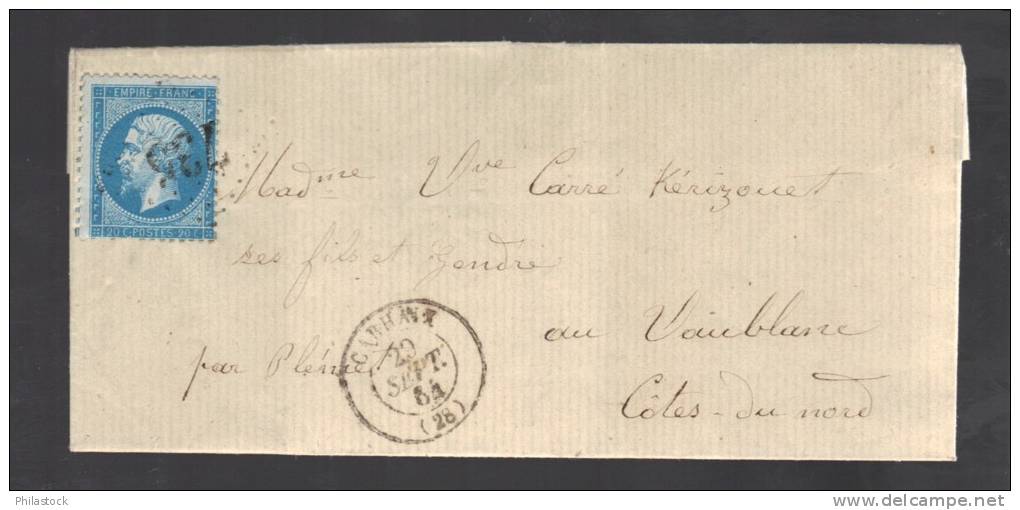 EMPIRE · FRANC ·
735
20 C · POSTES · 20 C
Madme Vve Carré Kérizouet
ses fils et Gendre
au Vaublanc
par Plémet
Côtes-du nord
CARHAIX
29
SEPT.
64
(28)
Philastock
www.delcampe.net